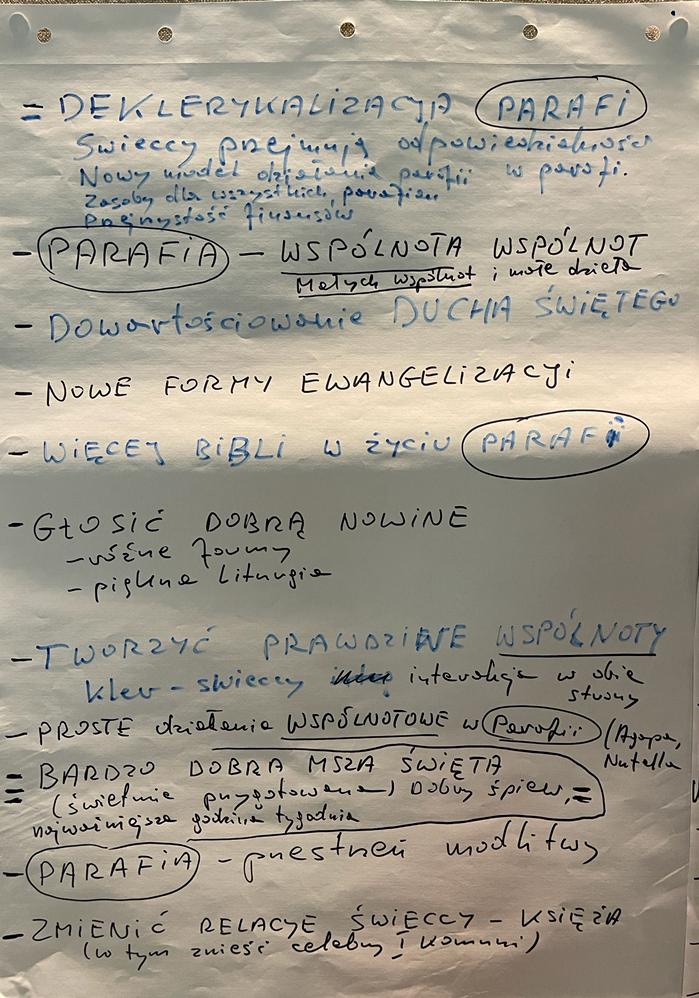 = DEKLERYKALIZACJA PARAFI
Świeccy przejmują odpowiedzialność
Nowy model działania parafii w parafi.
Zasoby dla wszystkich parafian
Przejrzystość finansów
- PARAFIA - WSPÓLNOTA WSPÓLNOT
Małych wspólnot i małe dzieła
- Dowartościowanie DUCHA ŚWIĘTEGO
- NOWE FORMY EWANGELIZACJI
- WIĘCEJ BIBLI W życiu PARAFII
- GŁOSIĆ DOBRĄ NOWINE
- różne formy
- piękna liturgia
- TWORZYĆ PRAWDZIWE WSPÓLNOTY
kler - świeccy interakcja w obie
strony
- PROSTE działania WSPÓLNOTOWE w Parafii (Agapa,
Nutella
= BARDZO DOBRA MSZA ŚWIĘTA
(świetnie przygotowana) Dobry śpiew, =
najważniejsza godzina tygodnia
- PARAFIA - przestrzeń modlitwy
- ZMIENIĆ RELACJE ŚWIECCY - KSIĘŻA
(w tym znieść celebry I Komuni)